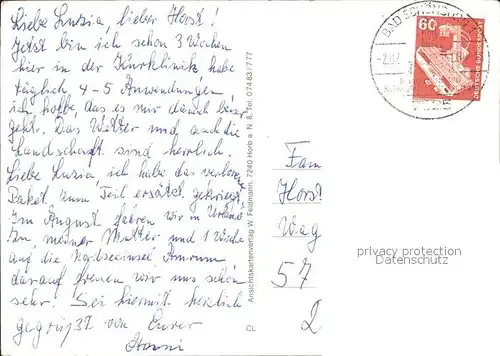 Liebe Luzia, lieber Horst!
Jetzt bin ich schon 3 Wochen
hier in der Kurklinik, habe
täglich 4-5 Anwendungen
ich hoffe, das es mir danach besser
geht. Das Wetter und auch die
Landschaft sind herrlich.
Liebe Luzia ich habe das verlorene
Paket zum Teil ersätzt gekriegt.
Im August fahren wir in Urlaub
In, meiner Mutter und 1 Woche
auf die Nordseeinsel Amrum
darauf freuen wir uns schon
sehr. Sei hiermit herzlich
gegrüßt von Eurer
Ansichtskartenverlag W. Feldmann, 7240 Horb a. N. 8, Tel. 07483/777
CL
BAD
60
DEUTSCHE BUNDESPOST
Fam
Horst
Wag
57
2
privacy protection
Datenschutz